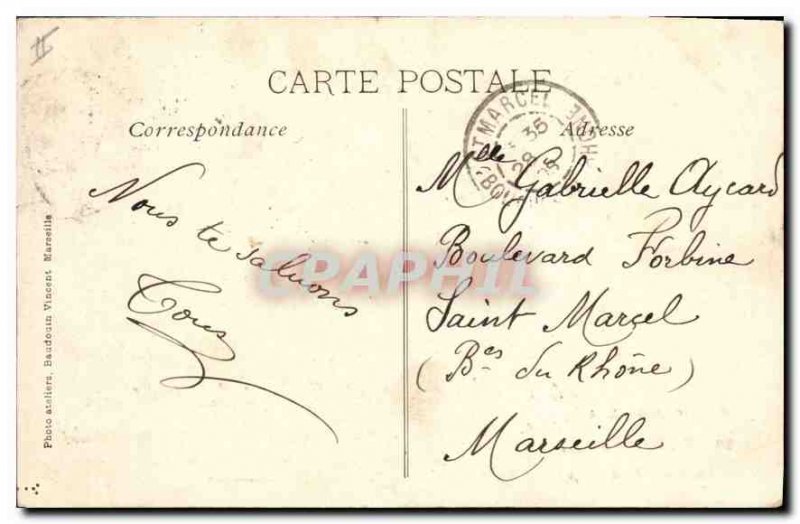 CARTE POSTALE
Correspondance
Adresse
MARCEL
35
Nous te saluons
Tous
Mlle Gabrielle Aycard
Boulevard Forbine
Saint Marcel
(Bes du Rhône)
Marseille
CPAPHIL
Photo ateliers, Baudouin Vincent Marseille